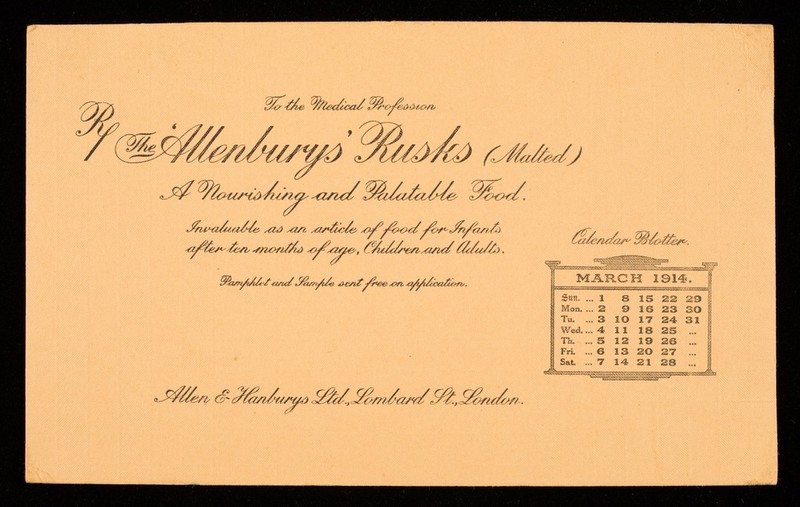 To the Medical Profession
R/ The 'Allenburys' Rusks (Malted)
A Nourishing and Palatable Food.
Invaluable as an article of food for Infants
after ten months of age, Children and Adults.
Pamphlet and Sample sent free on application.
Allen & Hanburys Ltd., Lombard St., London.
Calendar Blotter.
MARCH 1914.
Sun. ... 1 8 15 22 29
Mon. ... 2 9 16 23 30
Tu. ... 3 10 17 24 31
Wed. ... 4 11 18 25 ...
Th. ... 5 12 19 26 ...
Fri. ... 6 13 20 27 ...
Sat. ... 7 14 21 28 ...